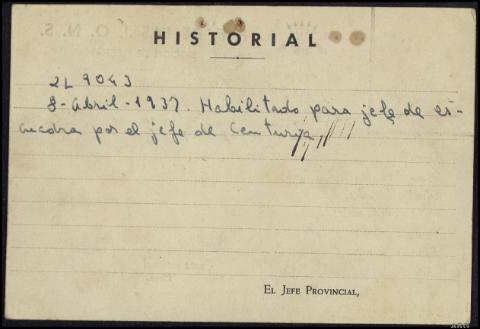 HISTORIAL
2L 9043
8-Abril-1937. Habilitado para jefe de es-
cuadra por el jefe de Centuria
EL JEFE PROVINCIAL,